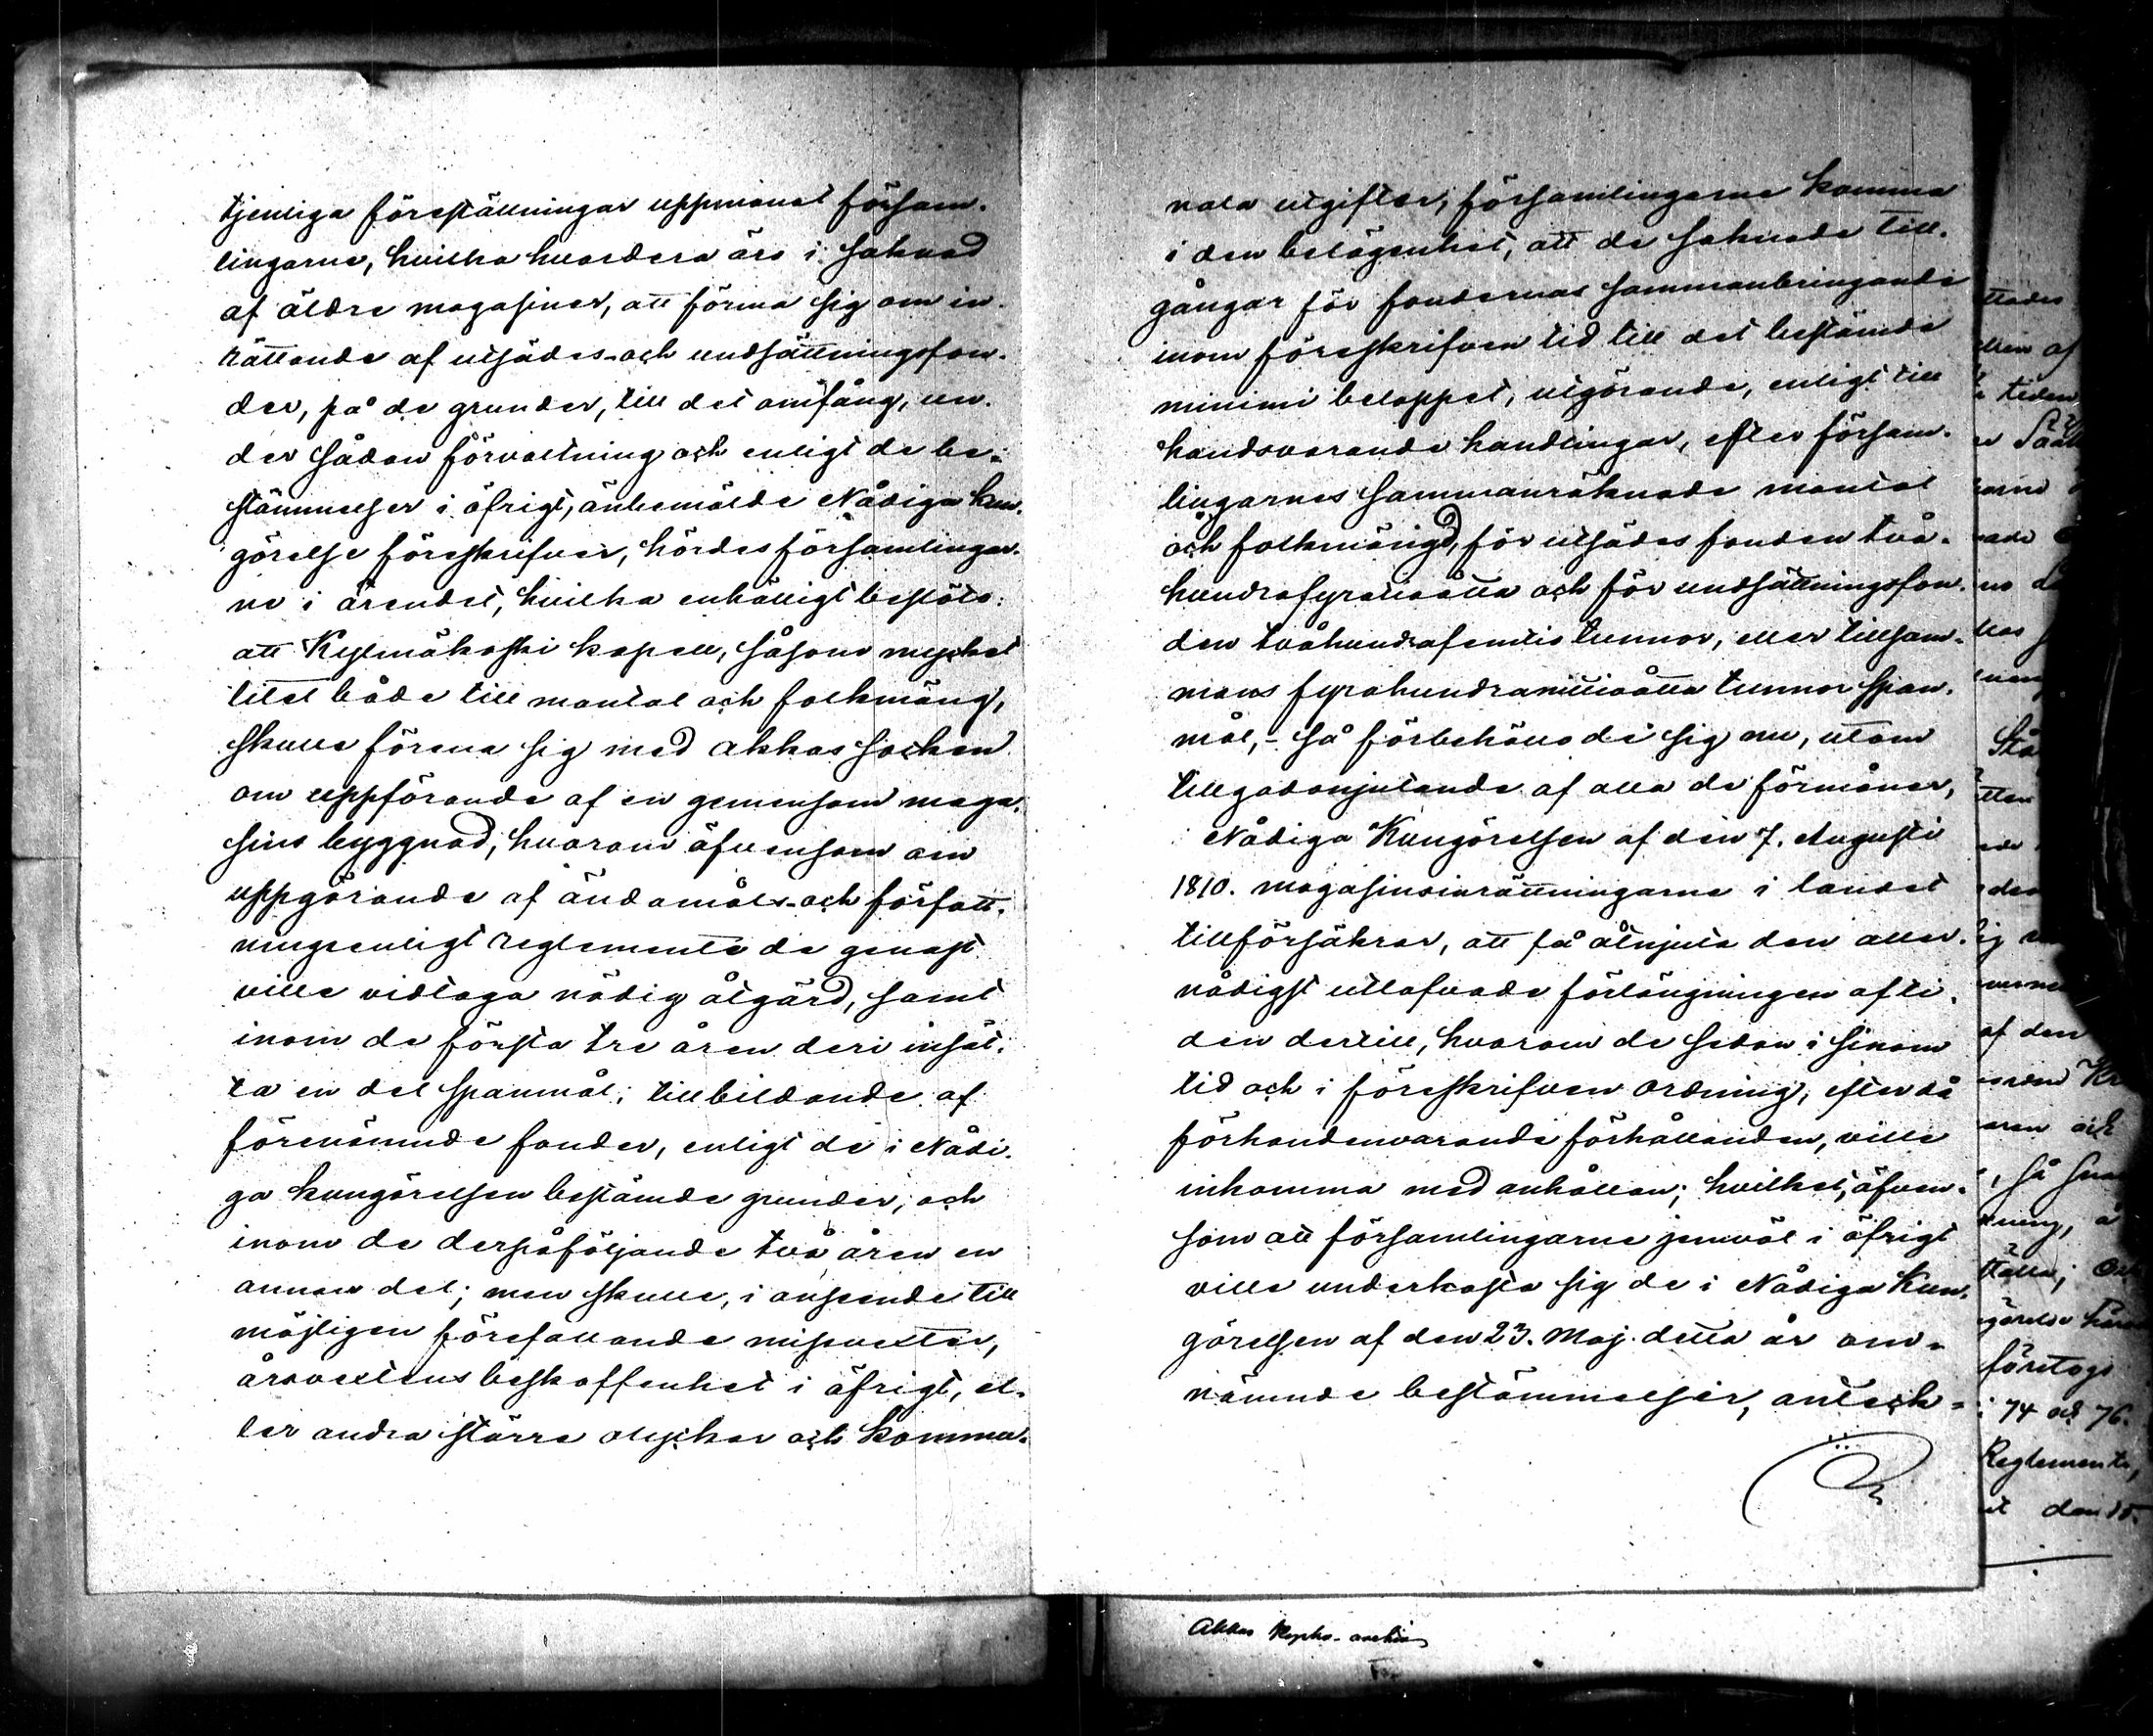 tjenliga föreställningar uppmanat försam-
lingarne, hvilka hvardera äro i saknad
af äldre magasiner, att förma sig om in-
rättande af utsädes- och undsättningsfon-
der, på de grunder, till det omfång, un-
der sådan förvaltning och enligt de be-
stämmelser i öfrigt, änbemälde Nådiga kun-
görelse föreskrifver, hördes församlingar-
ne i ärendet, hvilka enhälligt beslöto:
att Kylmäkoski kapell, såsom mycket
litet både till mantal och folkmäng,
skulle förena sig med Akkas socken
om uppförande af en gemensam maga-
sins byggnad, hvarom äfvensom om
uppgörande af ändamåls- och författ-
ningsenligt reglemente de genast
ville vidtaga nödig åtgärd, samt
inom de första tre åren deri insät-
ta en del spanmål; till bildande af
förenämnde fonder, enligt de i Nådi-
ga kungörelsen bestämde grunder, och
inom de derpåföljande två åren en
annan del; men skulle, i anseende till
möjligen förefallande missvexter,
årsvextens beskaffenhet i öfrigt, el-
ler andra större olyckor och kommu-
nala utgifter, församlingarne komma
i den belägenhet, att de saknade till-
gångar för fondernas sammanbringande
inom föreskrifven tid till det bestämda
minimi beloppet, utgörande, enligt till
handsvarande handlingar, efter försam-
lingarnes sammanräknade mantal
och folkmängd, för utsädes fonden två-
hundrafyratioåtta och för undsättningsfon-
den tvåhundrafemtio tunnor, eller tillsam-
mans fyrahundranittioåtta tunnor span-
mål, - så förbehöllo de sig nu, utom
tillgodonjutande af alla de förmåner,
Nådiga Kungörelsen af den 7. Augusti
1810. magasinsinrättningarne i landet
tillförsäkrar, att få åtnjuta den aller-
nådigst utlofvade förlängningen af ti-
den dertill, hvarom de sedan i sinom
tid och i föreskrifven ordning, efter då
förhandenvarande förhållanden, ville
inkomma med anhållan; hvilket, äfven-
som att församlingarne jemväl i öfrigt
ville underkasta sig de i Nådiga Kun-
görelsen af den 23. Maj detta år om-
nämnde bestämmelser, anteck-
af
tiden
af den
så
företogs
74 och 76.
Reglemente,
den 15.
Akkas